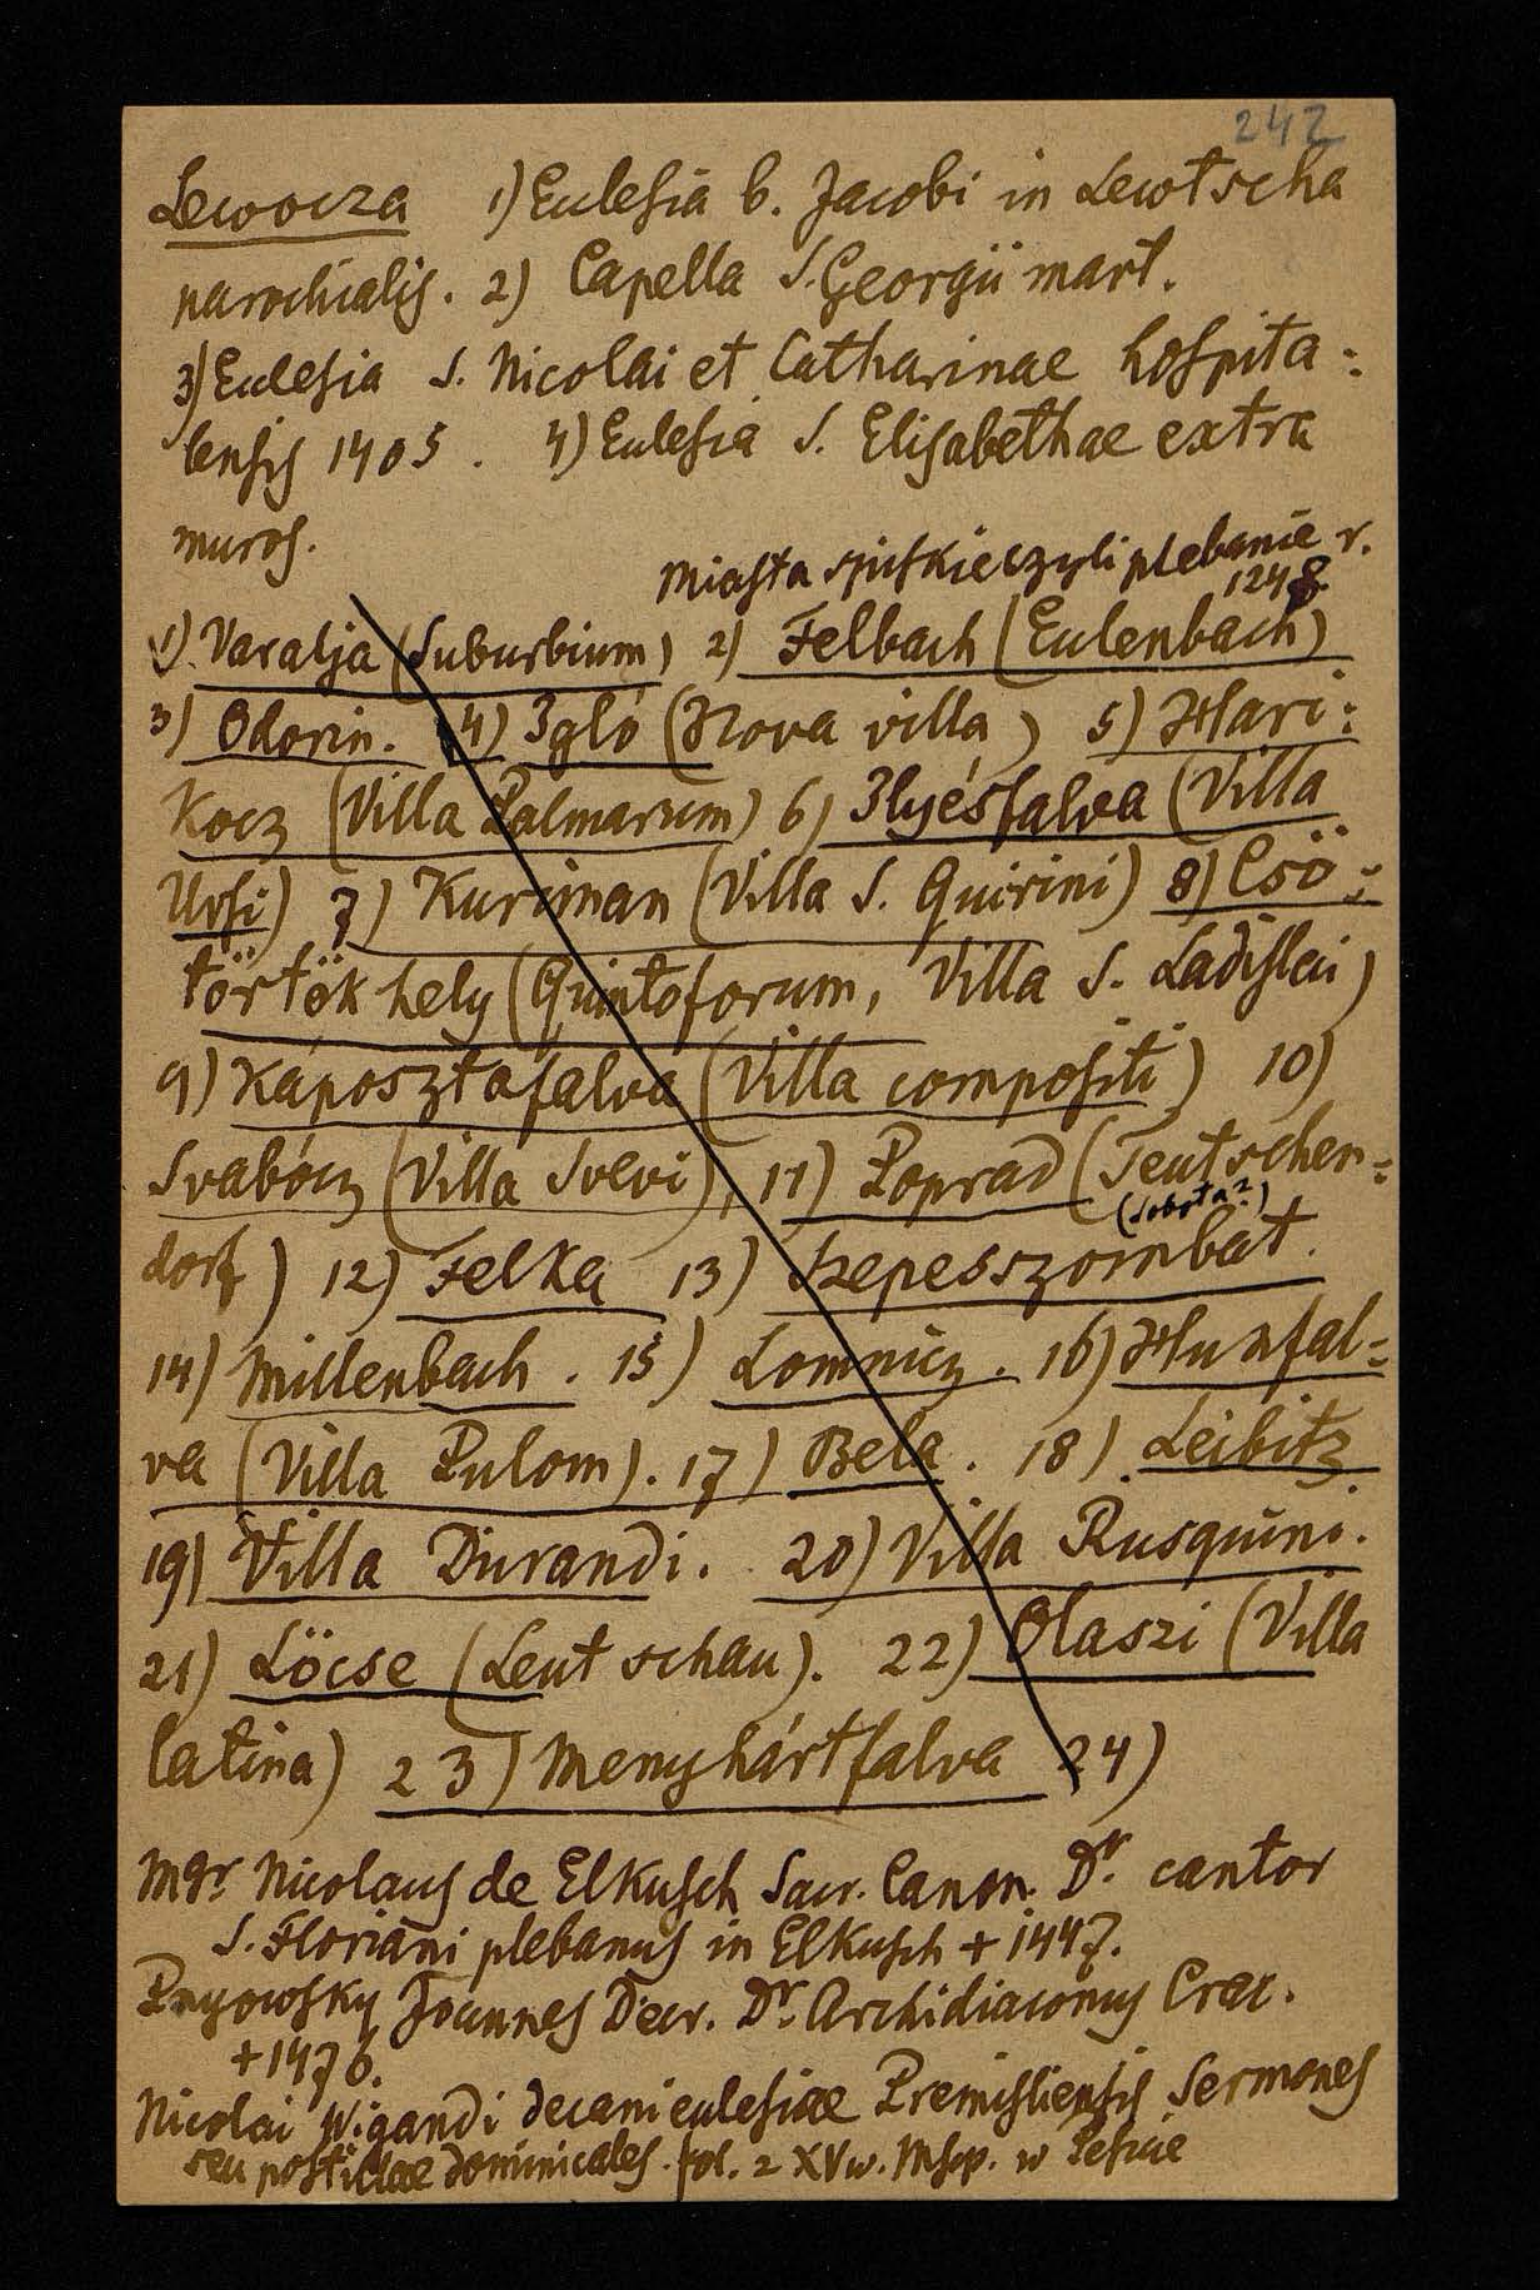 242
Lewocza 1) Ecclesia b. Jacobi in Lewtscha
parochialis. 2) Capella S. Georgii mart.
3) Ecclesia S. Nicolai et Catharinae hospita=
lensis 1405. 4) Ecclesia S. Elisabethae extra
muros.
Miasta spiskie czyli plebanie r.
1248
1) Varalja (Suburbium) 2) Felbach (Eulenbach)
3) Odorin. 4) Igló (Nova villa) 5) Hari=
kocz (Villa Palmarum) 6) Ilyésfalva (Villa
Ursi) 7) Kuriman (Villa S. Quirini) 8) Csö=
törtök hely (Quintoforum, Villa S. Ladislai)
9) Káposztafalva (Villa compositi) 10)
Svabócz (Villa Svevi), 11) Poprad (Teutschen=
(Sobota?)
dorf) 12) Felka 13) Szepesszombat.
14) Millenbach. 15) Lomnicz. 16) Hunfal=
va (Villa Pulom). 17) Bela. 18) Leibitz.
19) Villa Durandi. 20) Villa Rusquini.
21) Löcse (Leutschau). 22) Olaszi (Villa
latina) 23) Menyhártfalva 24)
Mgr. Nicolaus de Elkusch Sacr. Canon. Dr. cantor
S. Floriani plebanus in Elkusch + 1447.
Joannes Decr. Dr. Archidiaconus Crac.
+ 1476.
Nicolai Wigandi decani ecclesiae Premisliensis Sermones
seu postillae dominicales. fol. 2 XV w. Mspp. w